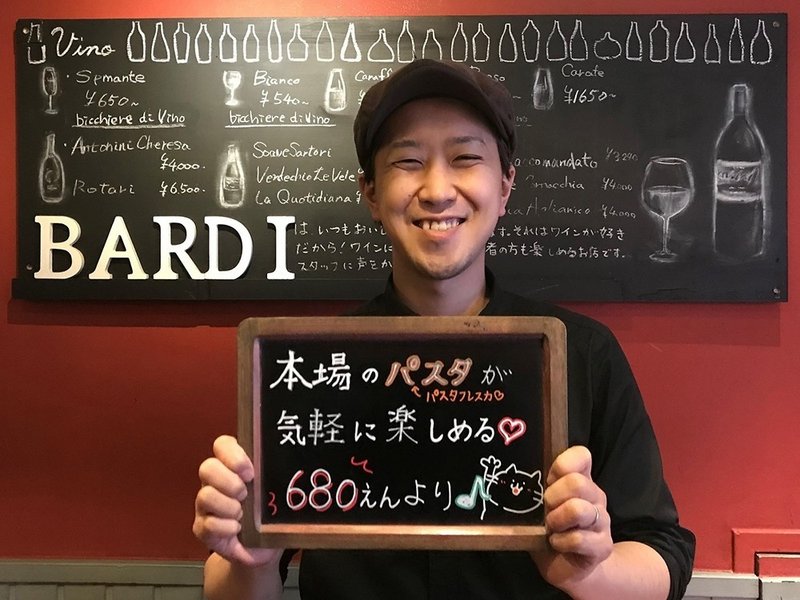 Vino
Semante
¥650~
bicchiere di Vino
Bianco
¥540~
bicchiere di Vino
Caraff
Carate
¥1650~
Antonini Cheresa
¥4.000~
Rotari ¥6.500~
Soave Sartori
Verdechio Le Vele
La Quotidiana
accomandato ¥3,240
¥4,000
Aglianico ¥4,000
BARDI
は、いつもおいし
す。それはワインが好き
だから!ワインに
者の方も楽しめるお店です。
スタッフに声をか
本場のパスタが
パスタフレスカ♡
気軽に楽しめる♡
680えんより♪